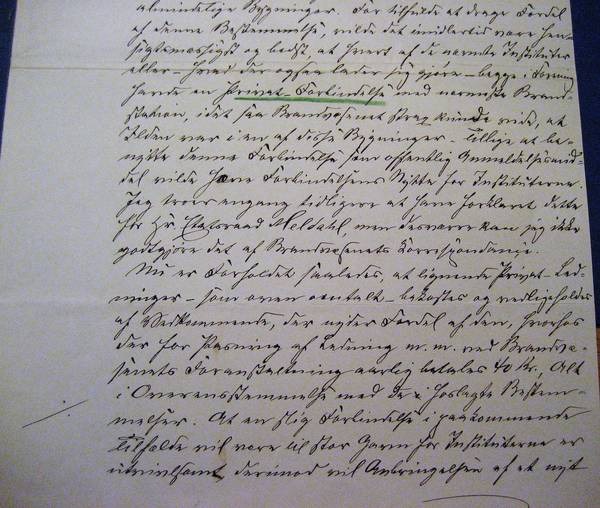 almindelige Bygninger. For tilfulde at drage Fordel
af denne Bestemmelse, vilde det imidlertid være hen-
sigtsmæssigst og bedst, at hvert af de nævnte Instituter
eller – hvad der ogsaa lader sig gjøre – begge i Forening
havde en Privat-Forbindelse med nærmeste Brand-
station, idet saa Brandvæsenet strax kunde vide, at
Ilden var i en af disse Bygninger. Tillige at be-
nytte denne Forbindelse som offentlig Anmeldelsessted
vilde hæve Forbindelsens Nytte for Instituterne.
Jeg troer engang tidligere at have forklaret dette
for Hr. Etatsraad Meldahl, men desværre kan jeg ikke
godtgjøre det af Brandvæsenets Korrespondance.
Nu er Forholdet saaledes, at lignende Privat-Led-
ninger – som oven omtalt – bekostes og vedligeholdes
af Vedkommende, der nyder Fordel af den, hvorhos
der for Pasning af Ledning m. m. ved Brandvæ-
senets Foranstaltning aarlig betales 40 Kr., Alt
i Overensstemmelse med de foreslagte Bestem-
melser. At en slig Forbindelse i paakommende
Tilfælde vil være til stor Gavn for Instituterne er
utvivlsomt, derimod vil Anbringelsen af et nyt